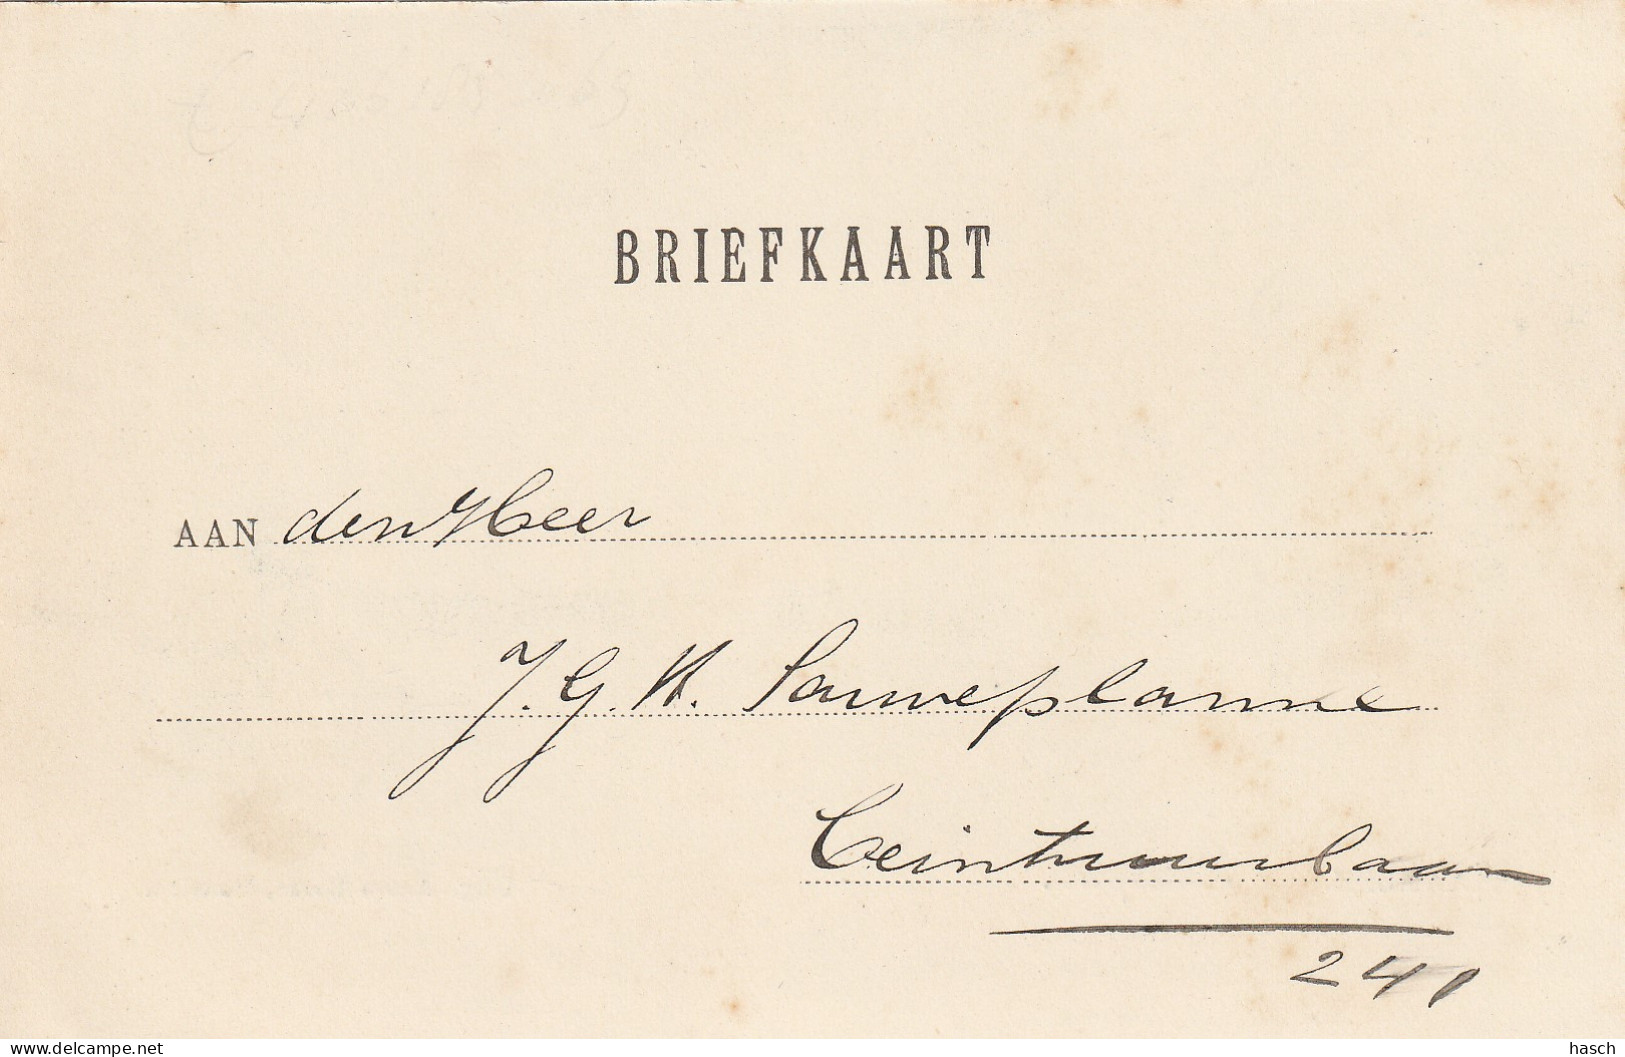 BRIEFKAART
AAN den Heer
J. G. H. Sauveplanne
Ceintuurbaan
241
www.delcampe.net
hasch